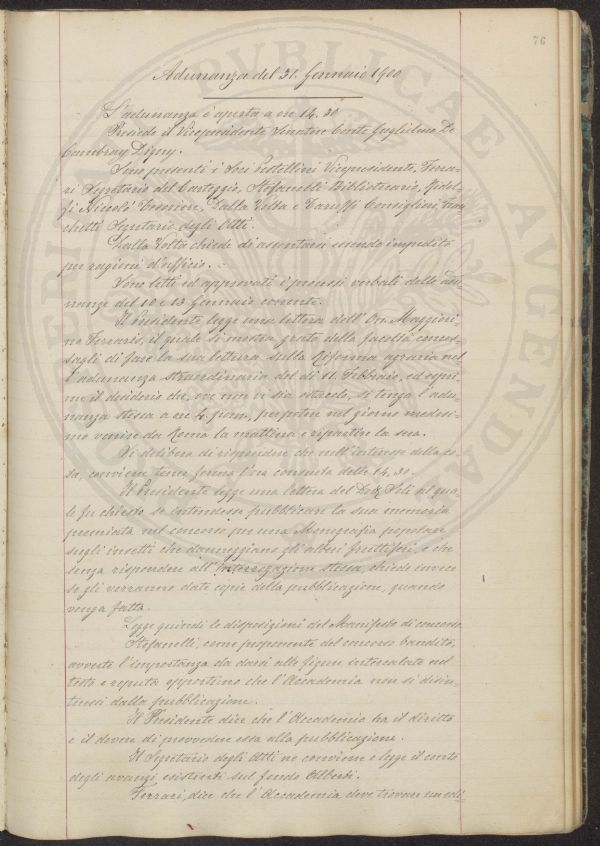 76
Adunanza del 31. Gennaio 1900
L'adunanza è aperta a ore 14.30
Presiede il Vicepresidente Senatore Conte Guglielmo De
Cambray Digny.
Sono presenti i Soci Pestellini Vicepresidente, Ferra-
ri Segretario del Carteggio, Stefanelli Bibliotecario, Ridol-
fi Niccolò Tesoriere, Dalla Volta e Caruffi Consiglieri,
chetti Segretario degli Atti.
Dalla Volta chiede di assentarsi essendo impedito
per ragioni d'ufficio.
Sono letti ed approvati i processi verbali delle adu-
nanze del 10 e 13 Gennaio corrente.
Il Presidente legge una lettera dell'On. Maggiori-
no Ferraris, il quale si mostra grato della facoltà conces-
sagli di fare la sua lettura sulla Riforma agraria nel
l'adunanza straordinaria del dì 11. Febbraio, ed espri
me il desiderio che, ove non vi sia ostacolo, si tenga l'adu-
nanza stessa a ore 4 pom., per poter nel giorno medesi-
mo venire da Roma la mattina e ripartire la sera.
Si delibera di rispondere che nell'interesse della co-
sa, conviene tener ferma l'ora consueta delle 14,30.
Il Presidente legge una lettera del Dott. Soli al qua-
le fu chiesto se intendesse pubblicare la sua memoria
premiata nel concorso per una Monografia popolare
sugli insetti che danneggiano gli alberi fruttiferi, e che
senza rispondere all'interrogazione stessa, chiede invece
se gli verranno date copie della pubblicazione, quando
venga fatta.
Legge quindi le disposizioni del Manifesto di concorso.
Stefanelli, come proponente del concorso bandito,
avverte l'importanza da darsi alle figure intercalate nel
testo e reputa opportuno che l'Accademia non si disin-
teressi dalla pubblicazione.
Il Presidente dice che l'Accademia ha il diritto
e il dovere di provvedere essa alla pubblicazione.
Il Segretario degli Atti ne conviene e legge il conto
degli avanzi esistenti sul fondo Alberti.
Ferrari, dice che l'Accademia deve trovare un edi-